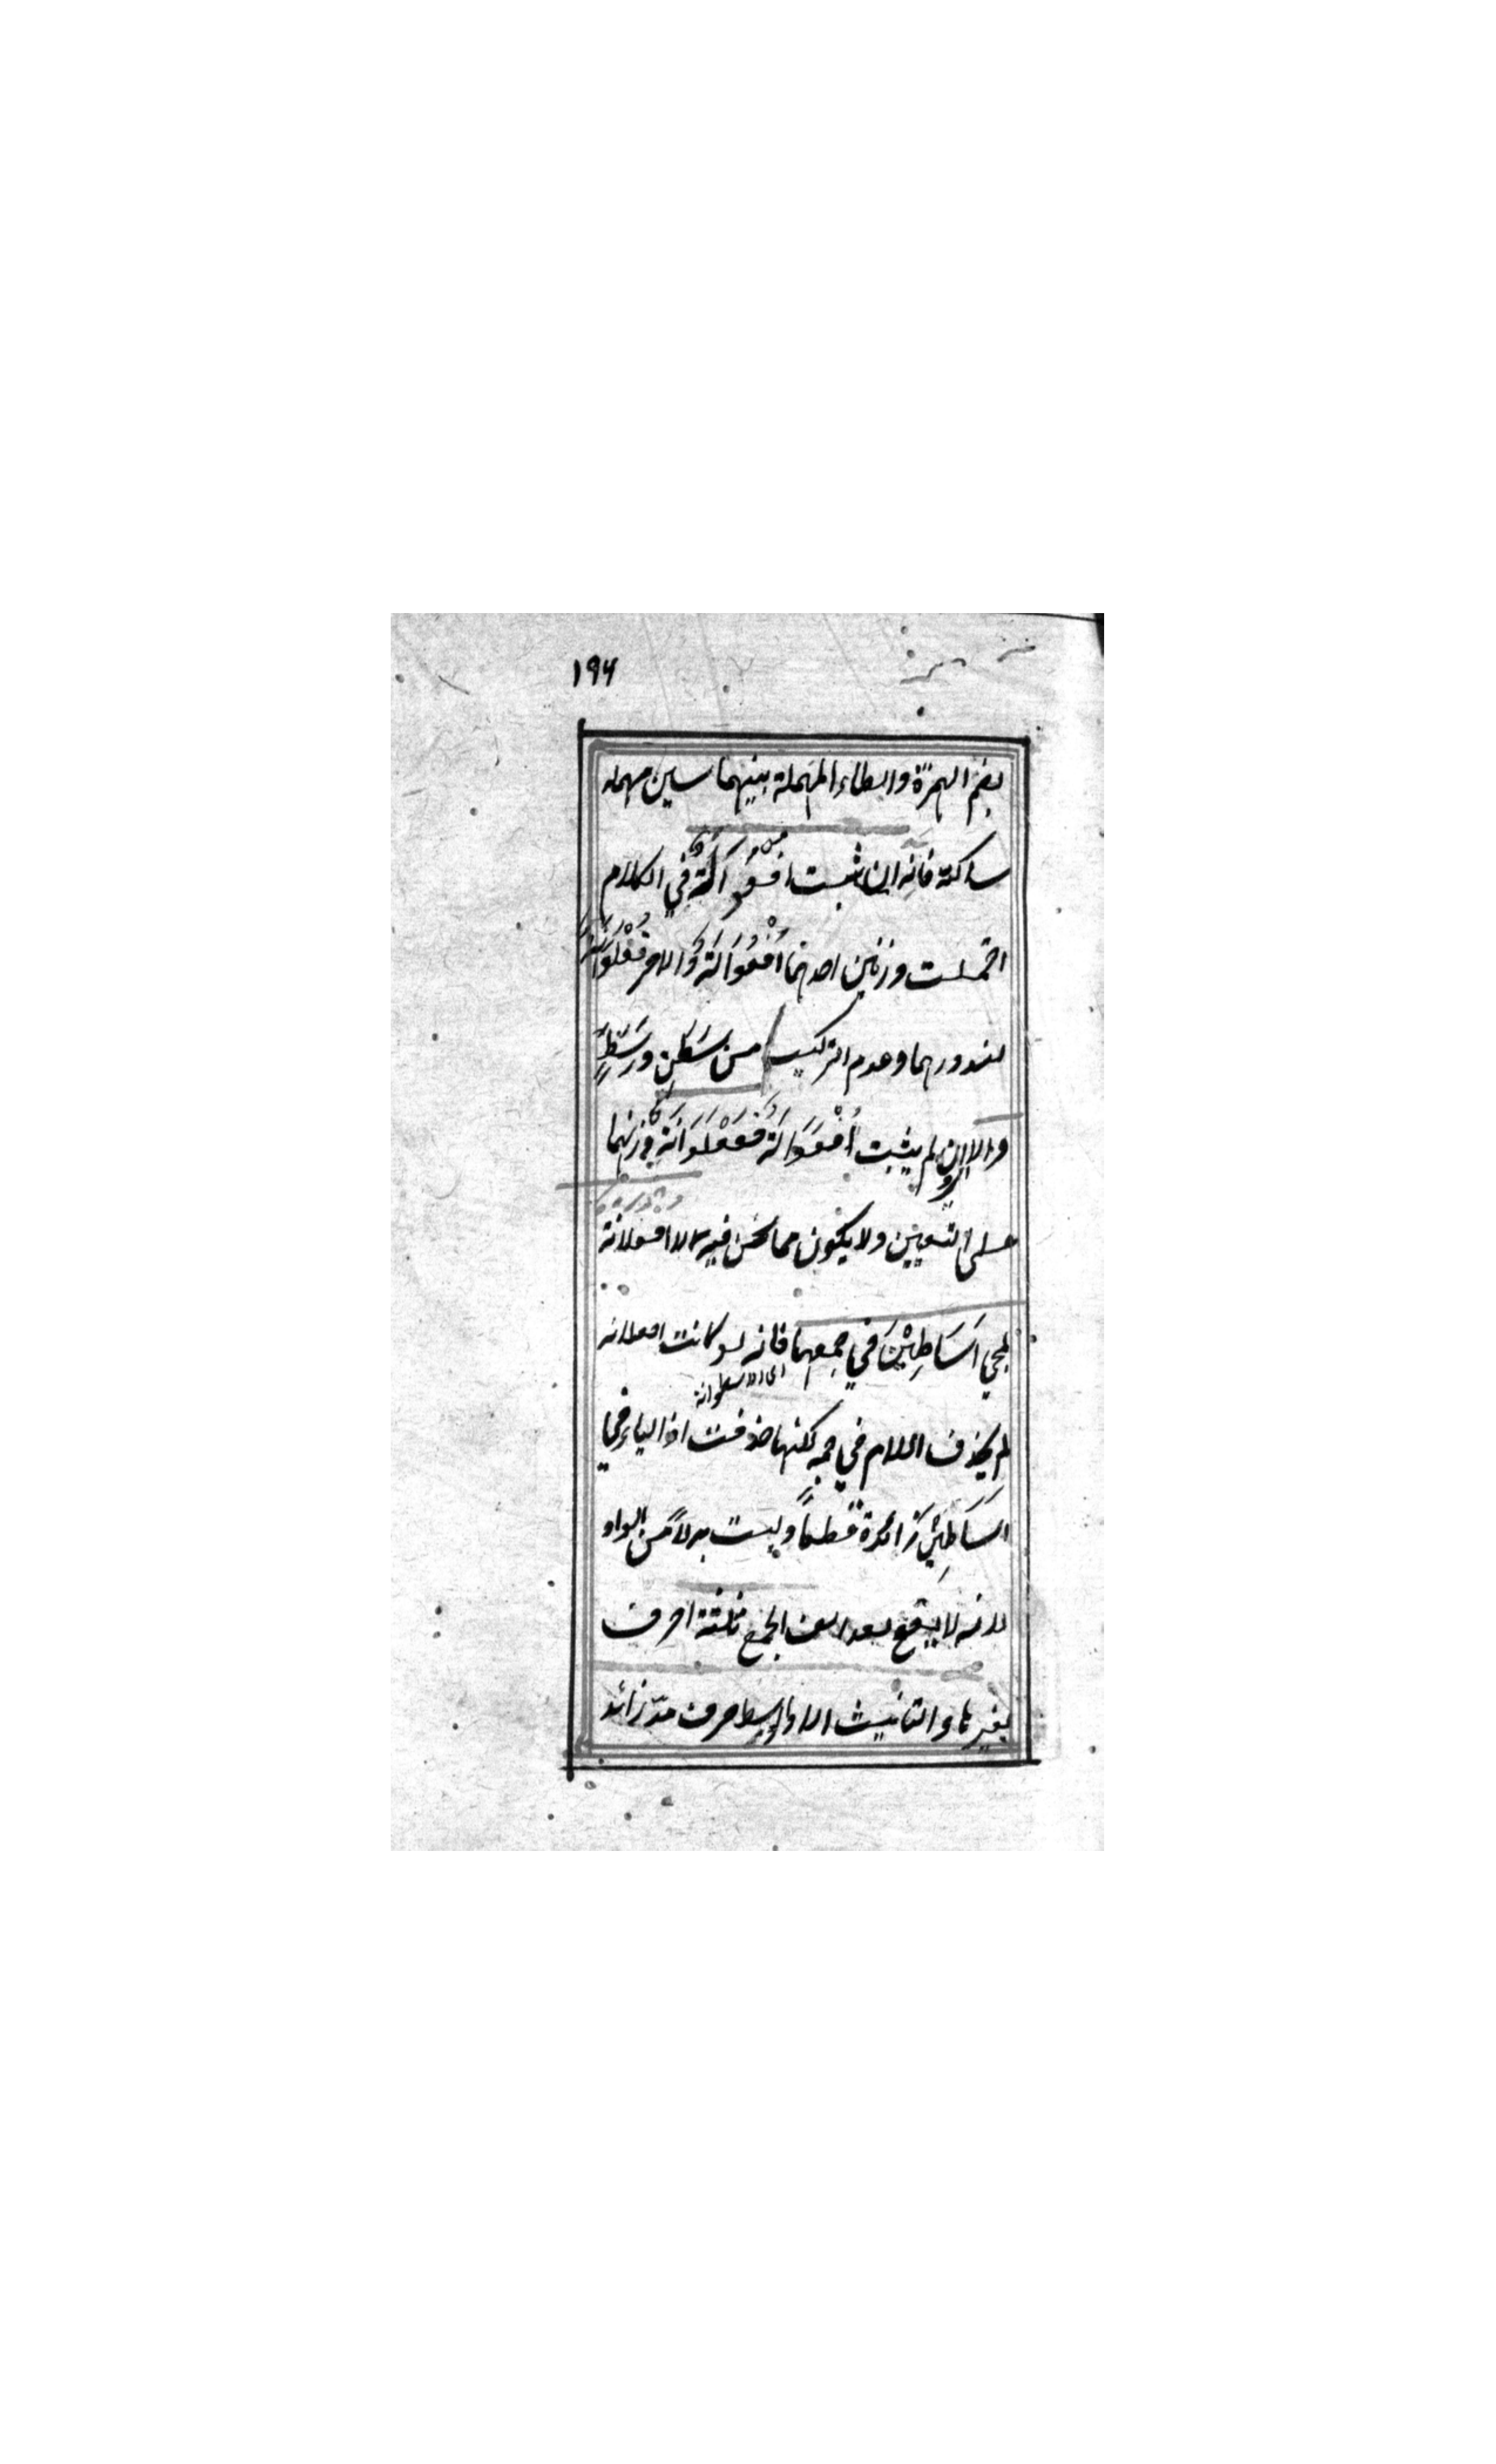 ١٩٤
بضم الهمزة والطاء المهملة بينهما سين مهملة
ساكنة فانه ان ثبت افعوالة في الكلام
احتملت وزنين احدهما اُفْعُوَالَة والاخر فُعْلُوَانَة
لندورهما وعدم التركيب من سَطَن و
والا ان لم يثبت اُفْعُوَالَة فَفُعْلُوَانَة وزنهما
على التعيين ولا يكون مما نحن فيه لا افعلانة
لمجي اَسَاطِيْنَ في جمعهما فانه لو كانت افعلانه
اى الاسطوانة
لم يحذف اللام في جمعه لكنها حذفت اذ الياء في
اَسَاطِيْن زائدة قطعاً وليست بدلاً من الواو
لانه لا يقع بعد الف الجمع ثلثة احرف
بغير تاء التانيث الا واوسط حرف مدّ زائد